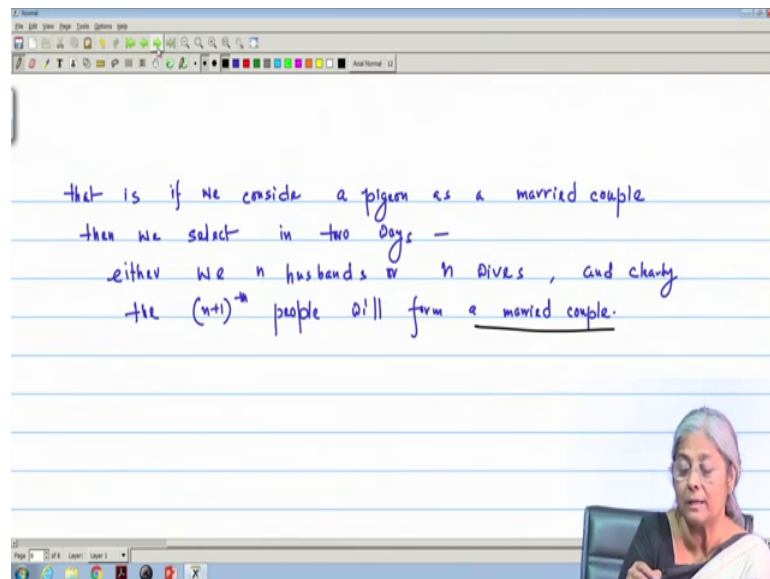 Journal
File Edit View Page Tools Options Help
Arial Normal 12
that is if we consider a pigeon as a married couple
then we select in two ways —
either we n husbands or n wives, and clearly
the (n+1)^th people will form a married couple.
Page of 8 Layer: Layer 1